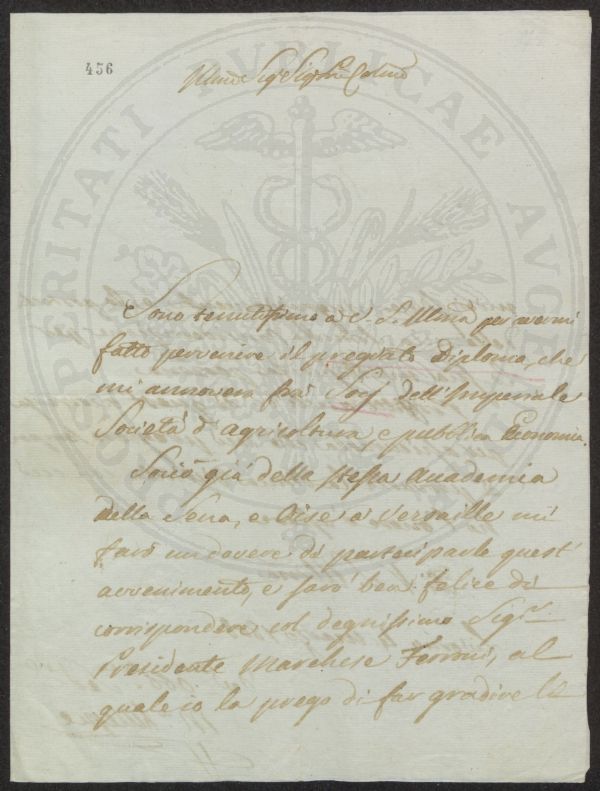 456
PROSPERITATI PVBLICAE AVGENDAE
Sig.
Sono tenutissimo a V. S. Illma per avermi
fatto pervenire il pregiato Diploma, che
mi annovera fra' Socj dell'Imperiale
Società d'agricoltura, e pubblica Economia.
Socio già della stessa Accademia
della Sena, e Oise a Versaille mi
farò un dovere di parteciparle quest'
avvenimento, e sarò ben felice di
corrispondere col degnissimo Sigr.
Presidente Marchese Ferroni, al
quale io la prego di far gradire le